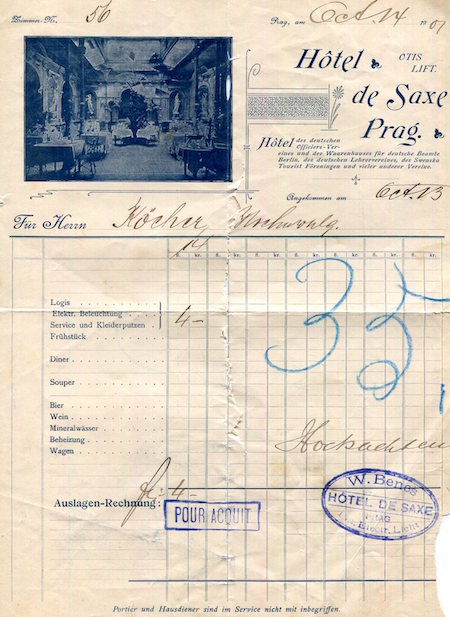 Zimmer-Nr. 56
Prag, am Oct 14 1901
Hôtel OTIS LIFT.
de Saxe
Prag.
Hôtel des deutschen
Officiers-Ver-
eines und des Waarenhauses für deutsche Beamte
Berlin, des deutschen Lehrervereines, des Svenska
Tourist Föreningen und vieler anderer Vereine.
Angekommen am Oct 13
Für Herrn Köcher
14
fl. kr. fl. kr. fl. kr. fl. kr. fl. kr. fl. kr. fl. kr.
35
Logis
Elektr. Beleuchtung
Service und Kleiderputzen 4—
Frühstück
Diner
Souper
Bier
Wein
Mineralwässer
Beheizung
Wagen
Auslagen-Rechnung: fl. 4—
POUR ACQUIT
W. Benes
HÔTEL DE SAXE
PRAG
Electr. Licht
Portier und Hausdiener sind im Service nicht mit inbegriffen.